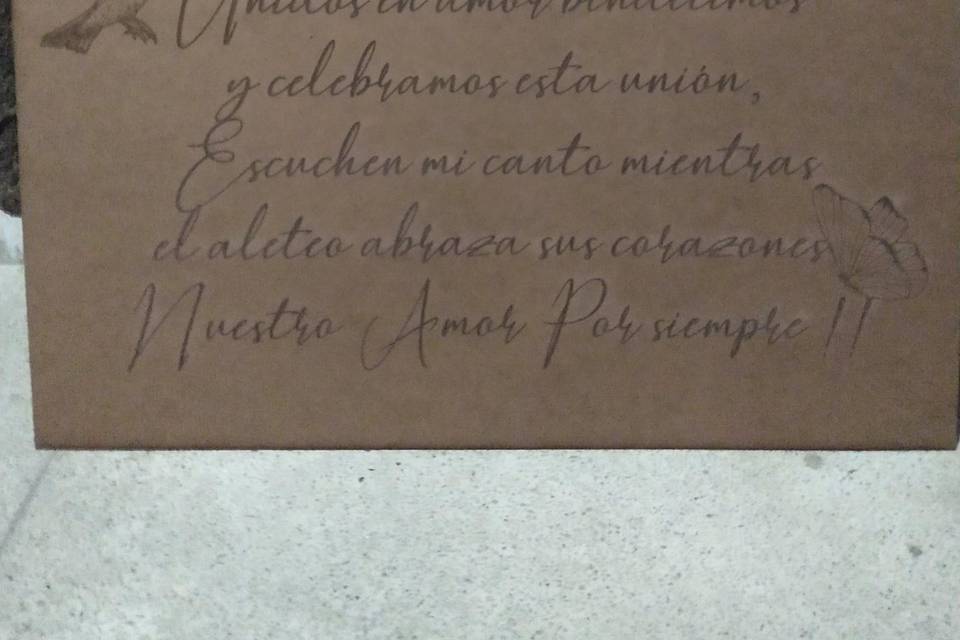 Unidos en amor bendecimos
y celebramos esta unión,
Escuchen mi canto mientras
el aleteo abraza sus corazones
Nuestro Amor Por siempre !!